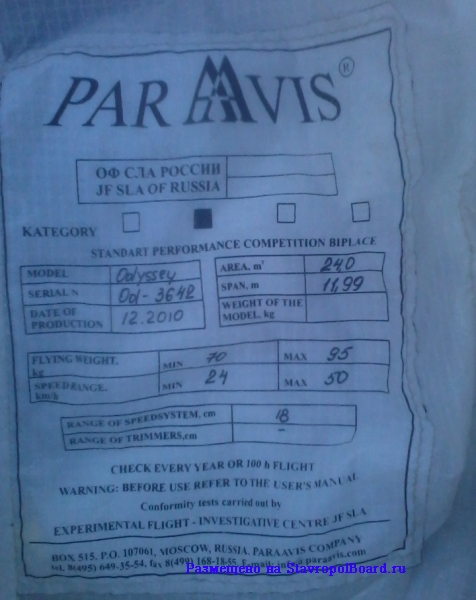 PARAAVIS®
ОФ СЛА РОССИИ
JF SLA OF RUSSIA
KATEGORY
STANDART PERFORMANCE COMPETITION BIPLACE
MODEL Odyssey
SERIAL N Od-3642
DATE OF PRODUCTION 12.2010
AREA, m² 240
SPAN, m 11,99
WEIGHT OF THE MODEL, kg
FLYING WEIGHT, kg MIN 70 MAX 95
SPEEDRANGE, km/h MIN 24 MAX 50
RANGE OF SPEEDSYSTEM, cm 18
RANGE OF TRIMMERS,cm -
CHECK EVERY YEAR OR 100 h FLIGHT
WARNING: BEFORE USE REFER TO THE USER'S MANUAL
Conformity tests carried out by
EXPERIMENTAL FLIGHT - INVESTIGATIVE CENTRE JF SLA
BOX 515, P.O. 107061, MOSCOW, RUSSIA. PARAAVIS COMPANY
tel. 8(495) 649-35-54, fax 8(499) 168-18-55, E-mail: info@paraavis.com
Размещено на StavropolBoard.ru